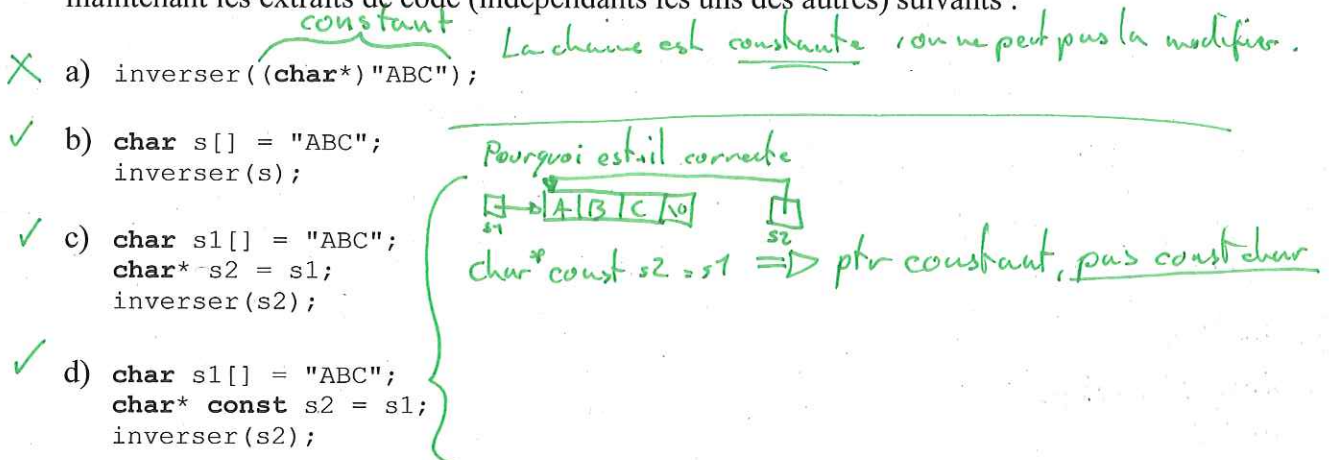 maintenant les extraits de code (indépendants les uns des autres) suivants :
constant
La chaine est constante, on ne peut pas la modifier.
X a) inverser((char*)"ABC");
✓ b) char s[] = "ABC";
inverser(s);
Pourquoi est-il correcte
A B C \0
s1 s2
✓ c) char s1[] = "ABC";
char* s2 = s1;
inverser(s2);
char* const s2 = s1 => ptr constant, pas const char
✓ d) char s1[] = "ABC";
char* const s2 = s1;
inverser(s2);